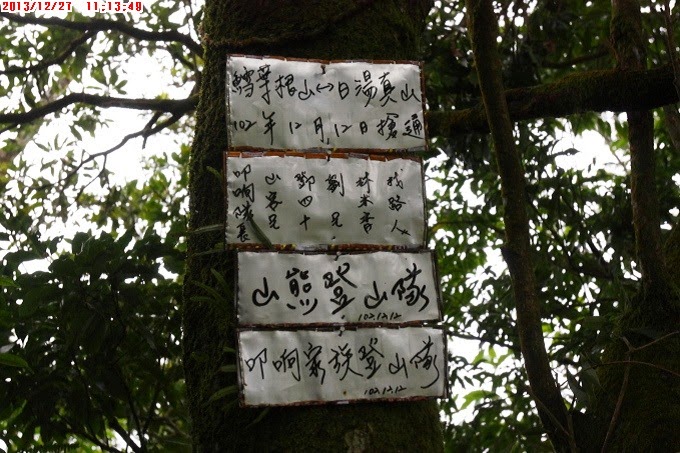 2013/12/27 11:13:49
鱈葉根山↔日湯真山
102年12月12日搶通
叩响隊長
山客兄
鄧四十
劉兄
林米香
找路人
山熊登山隊
102.12.12
叩响家族登山隊
102.12.12